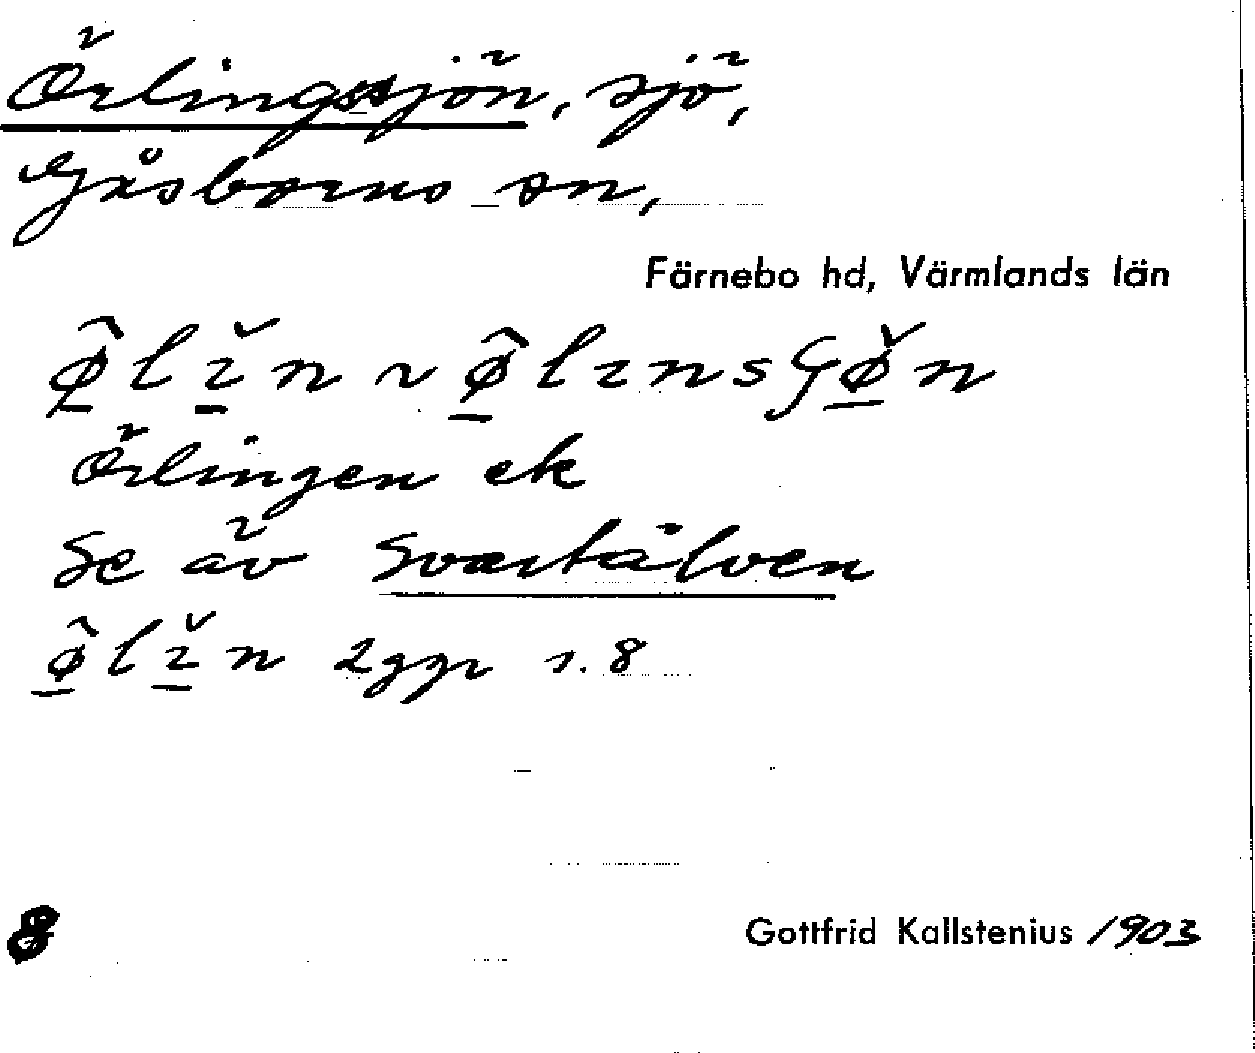 Örlingssjön, sjö,
Gåsborns sn,
Färnebo hd, Värmlands län
ø̲̂lɪ̲̌n ~ ø̲̂lɪnsʃø̲̌n
Örlingen ek
Se äv Svartälven
ø̲̂lɪ̲̌n 2ggr s. 8
8
Gottfrid Kallstenius 1903